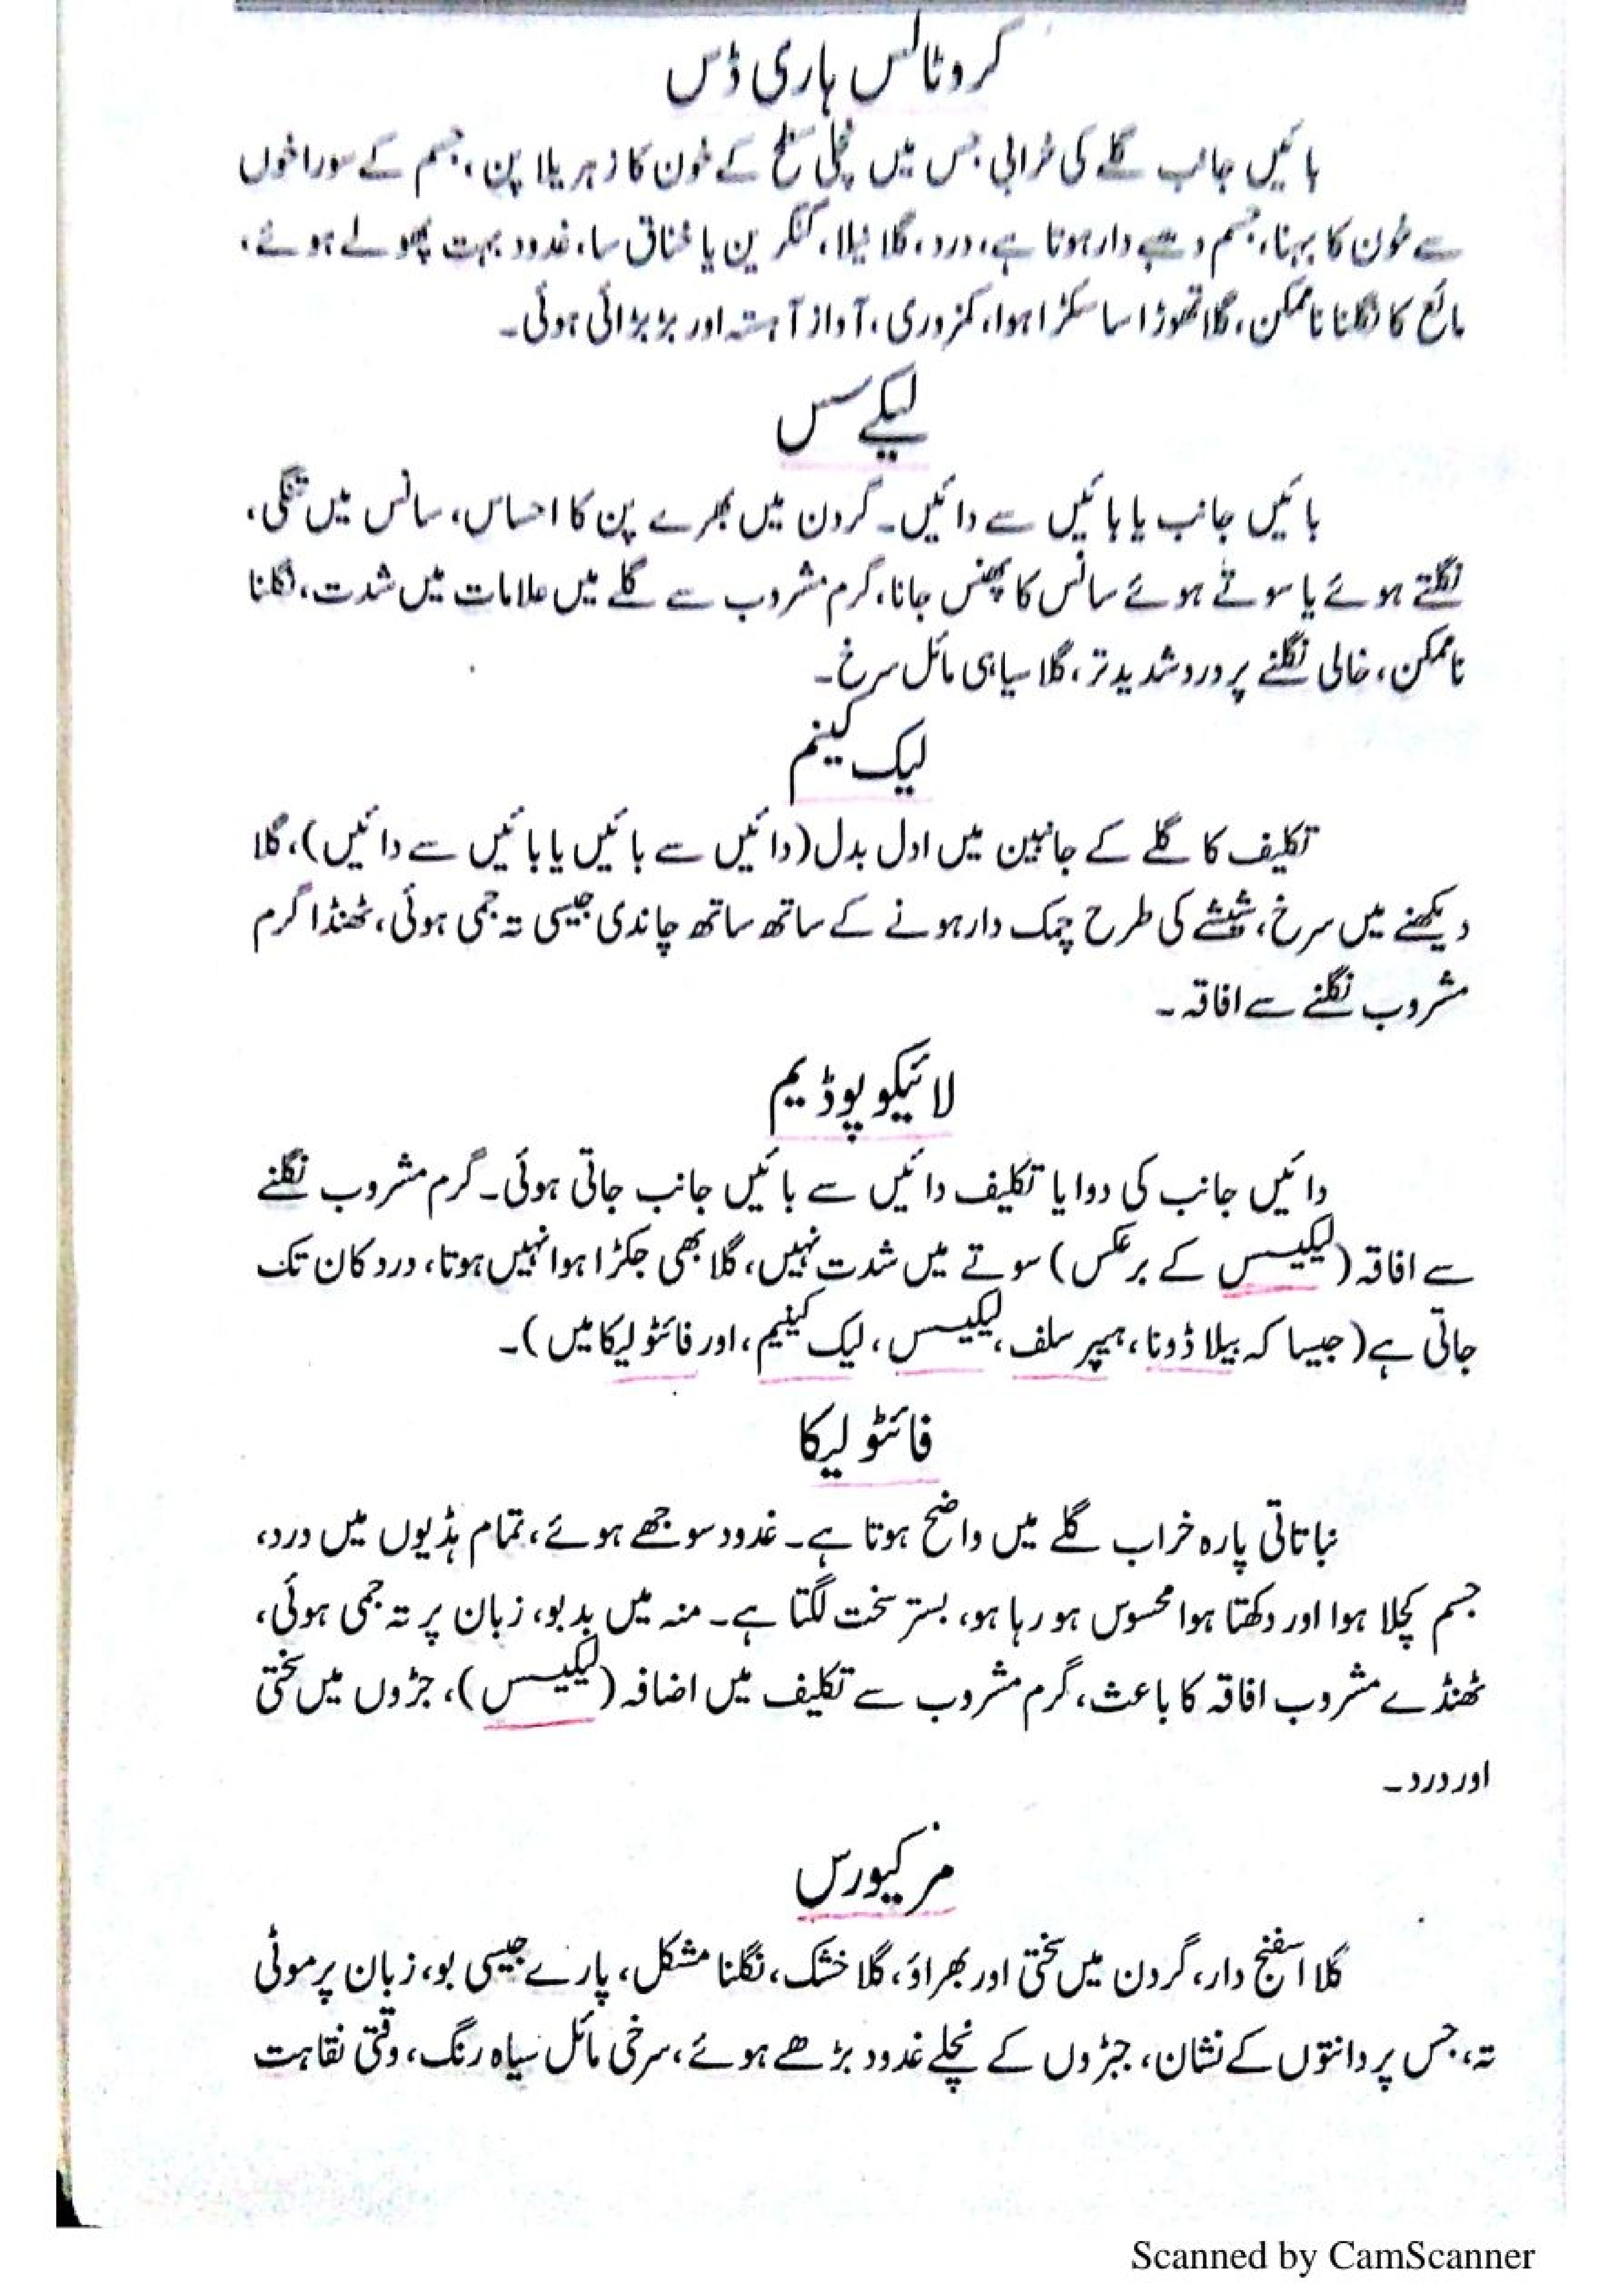 کروٹالس ہاری ڈس
بائیں جانب گلے کی خرابی جس میں نچلی سطح کے خون کا زہریلا پن، جسم کے سوراخوں
سے خون کا بہنا، جسم دھبے دار ہوتا ہے، درد، گلا نیلا، گنگرین یا خناق سا، غدود بہت پھولے ہوئے،
مائع کا نگلنا ناممکن، گلا تھوڑا سا سکڑا ہوا، کمزوری، آواز آہستہ اور بڑبڑائی ہوئی۔
لیکے سس
بائیں جانب یا بائیں سے دائیں۔ گردن میں بھرے پن کا احساس، سانس میں تنگی،
نگلتے ہوئے یا سوتے ہوئے سانس کا پھنس جانا، گرم مشروب سے گلے میں علامات میں شدت، نگلنا
ناممکن، خالی نگلنے پر درد شدید تر، گلا سیاہی مائل سرخ۔
لیک کینم
تکلیف کا گلے کے جانبین میں ادل بدل (دائیں سے بائیں یا بائیں سے دائیں)، گلا
دیکھنے میں سرخ، شیشے کی طرح چمک دار ہونے کے ساتھ ساتھ چاندی جیسی تہ جمی ہوئی، ٹھنڈا گرم
مشروب نگلنے سے افاقہ۔
لائیکوپوڈیم
دائیں جانب کی دوا یا تکلیف دائیں سے بائیں جانب جاتی ہوئی۔ گرم مشروب نگلنے
سے افاقہ (لیکیسس کے برعکس) سوتے میں شدت نہیں، گلا بھی جکڑا ہوا نہیں ہوتا، درد کان تک
جاتی ہے (جیسا کہ بیلا ڈونا، ہیپر سلف، لیکیسس، لیک کینیم، اور فائٹولیکا میں)۔
فائٹولیکا
نباتاتی پارہ خراب گلے میں واضح ہوتا ہے۔ غدود سوجھے ہوئے، تمام ہڈیوں میں درد،
جسم کچلا ہوا اور دکھتا ہوا محسوس ہو رہا ہو، بستر سخت لگتا ہے۔ منہ میں بدبو، زبان پر تہ جمی ہوئی،
ٹھنڈے مشروب افاقہ کا باعث، گرم مشروب سے تکلیف میں اضافہ (لیکیسس)، جڑوں میں سختی
اور درد۔
مرکیورس
گلا اسفنج دار، گردن میں سختی اور بھراؤ، گلا خشک، نگلنا مشکل، پارے جیسی بو، زبان پر موٹی
تہ، جس پر دانتوں کے نشان، جبڑوں کے نچلے غدود بڑھے ہوئے، سرخی مائل سیاہ رنگ، وقتی نقاہت
Scanned by CamScanner